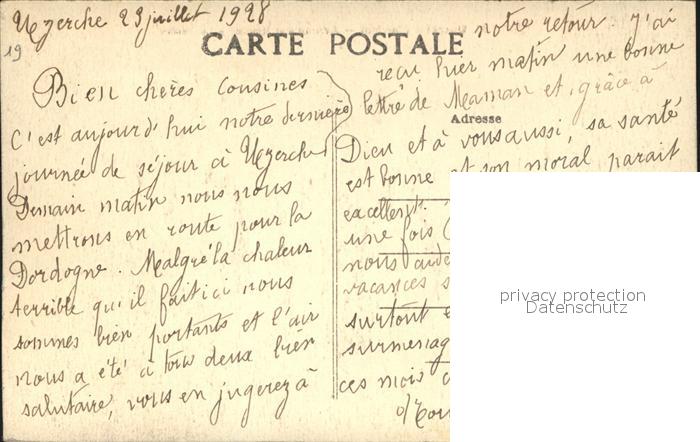 Uzerche 23 juillet 1928
19
CARTE POSTALE
Bien chères Cousines
C'est aujourd'hui notre dernière
journée de séjour à Uzerche
Demain matin nous nous
mettrons en route pour la
Dordogne. Malgré la chaleur
terrible qu'il fait ici nous
sommes bien portants et l'air
nous a été à tous deux bien
salutaire, vous en jugerez à
notre retour. J'ai
reçu hier matin une bonne
lettre de Maman et, grâce à
Adresse
Dieu et à vous aussi, sa santé
est bonne et son moral parait
excellent.
une fois
nous
vacances
surtout
surmenag
ces mois
privacy protection
Datenschutz